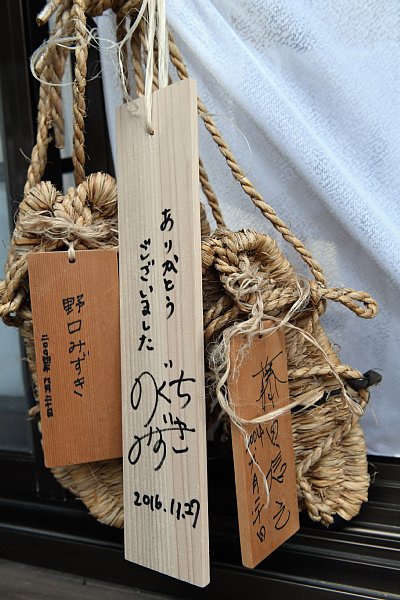 野口みずき
ありがとう
ございました
のぐち
みずき
2016.11.27
藤田信之